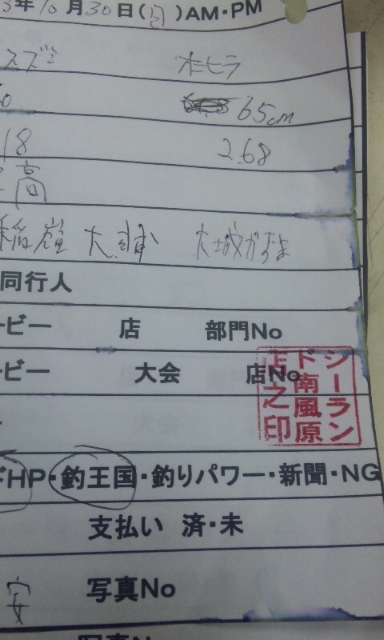 年10月30日(日)AM・PM
スズミ ホヒラ
65cm
18 2.68
高
稲嶺 大輔 大城かずま
同行人
ービー 店 部門No
ービー 大会 店No
シーラン
ド南風原
正之印
HP・釣王国・釣りパワー・新聞・NG
支払い 済・未
安 写真No
写真No